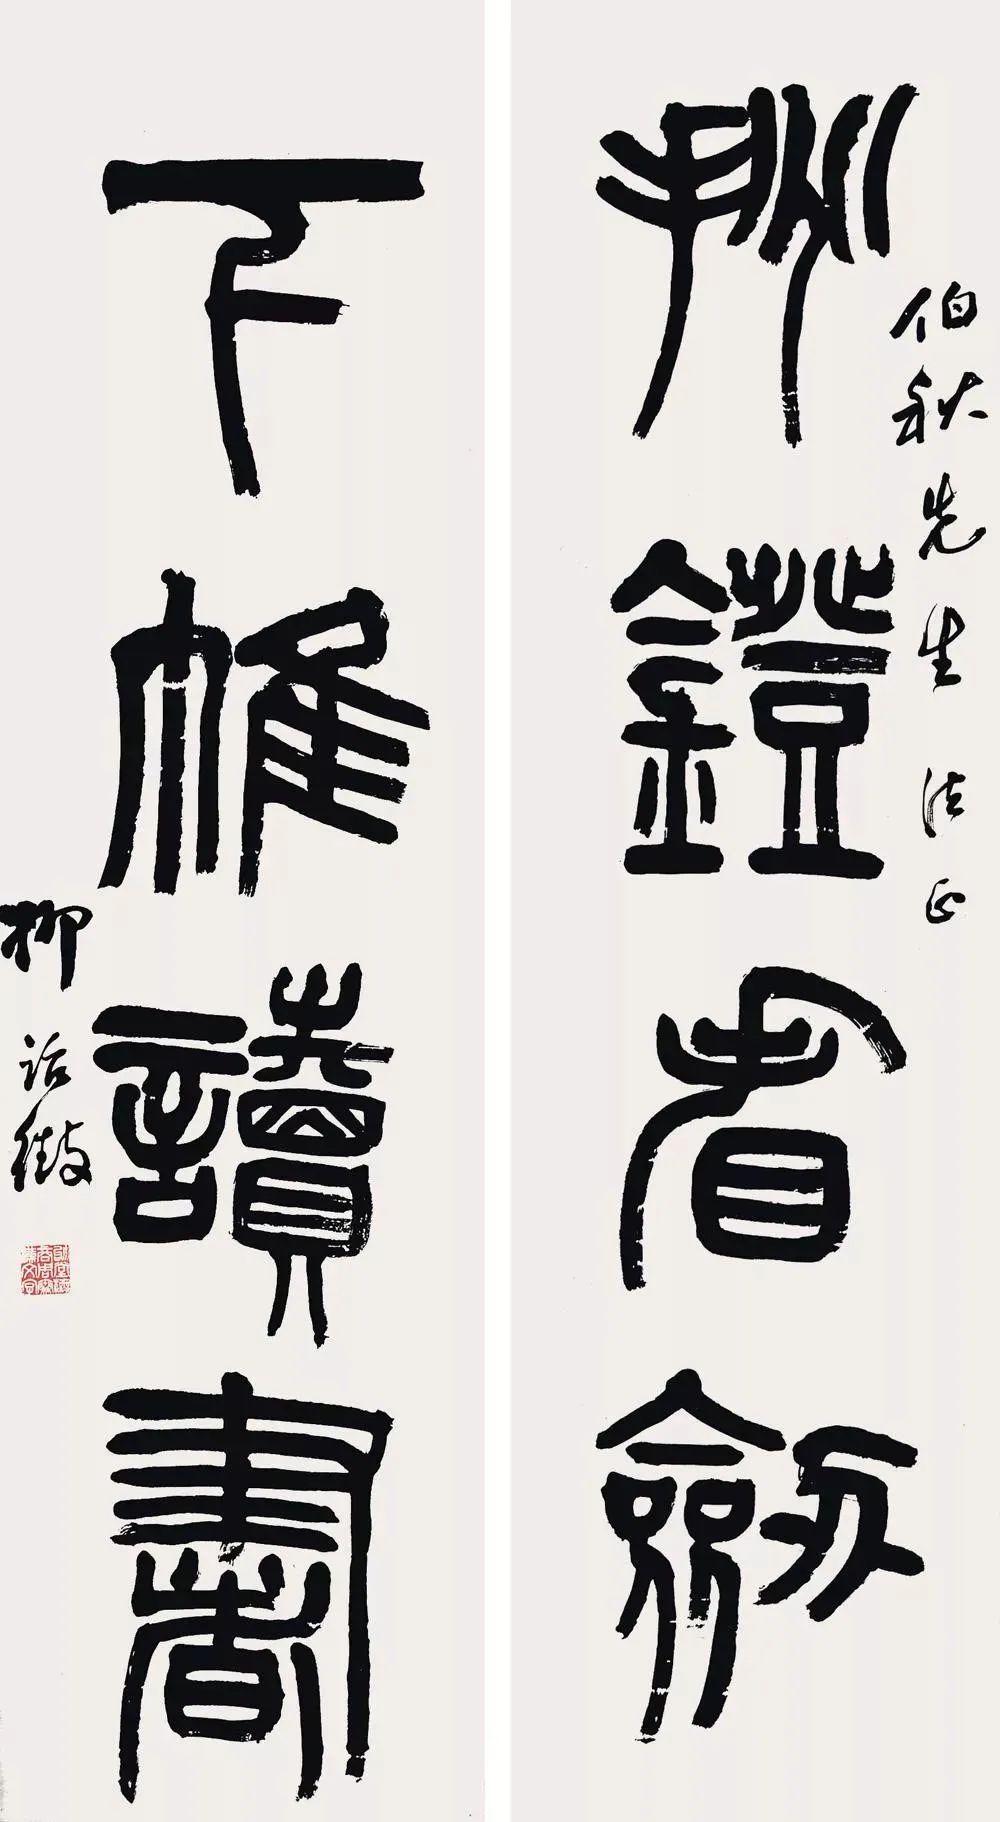 伯秋先生 法正
挑鐙看劒
下帷讀書
柳詒徵